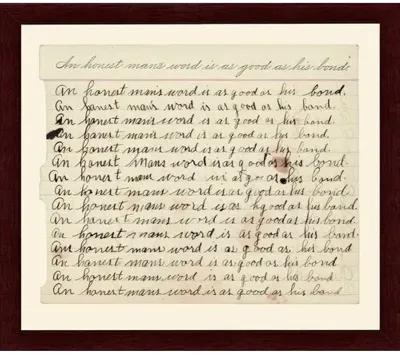 An honest mans word is as good as his bond.
An honest man's word is as good as his bond.
An hanest man's word is as good as his band.
An honest man's word is as good as his bond.
An honest man's word is as good as his bond.
An honest man's word is as good as his bond.
An honest mans word is as good as his bond.
An honest man word is as good as his bond.
An honest mans word is as good as his bond.
An honest mans word is as good as his bond.
An honest mans word is as good as his bond.
An honest mans word is as good as his bond.
An honest mans word is as good as his bond
An honest mans word is as good as his bond
An honest mans word is as good as his bond
An honest mans word is as good as his bond